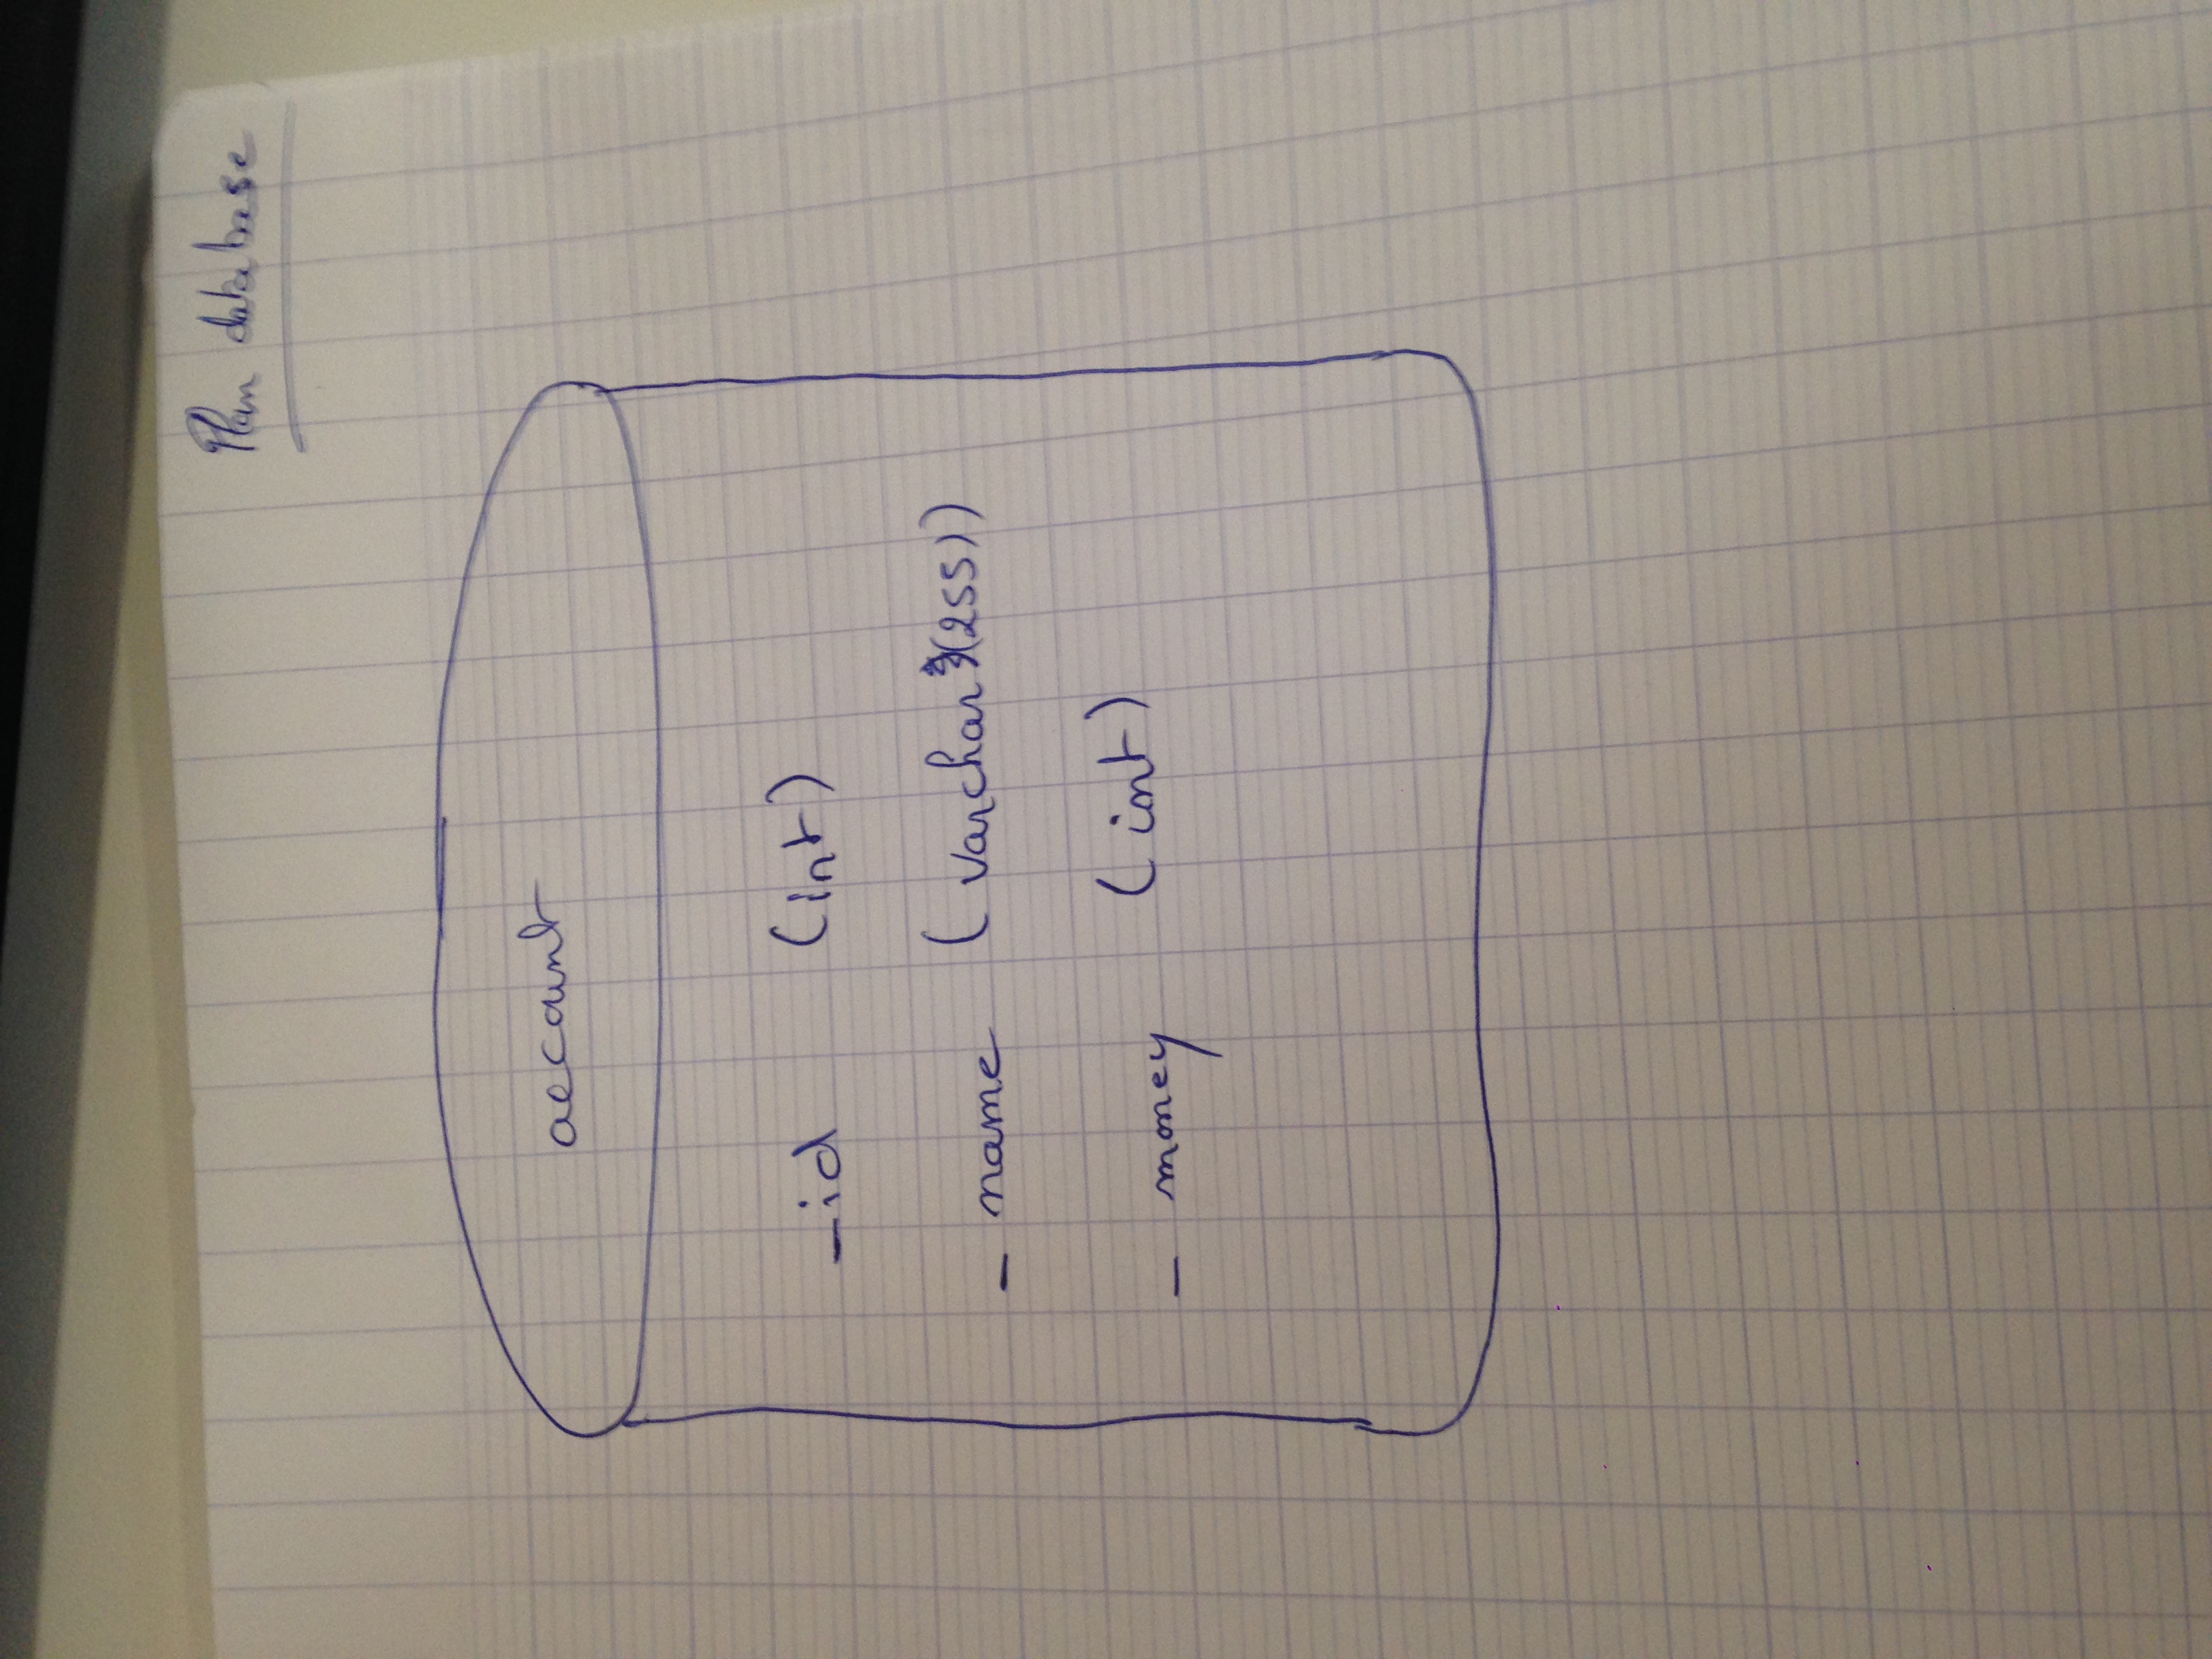 Plan database
account
- id (int)
- name (varchar(255))
- money (int)